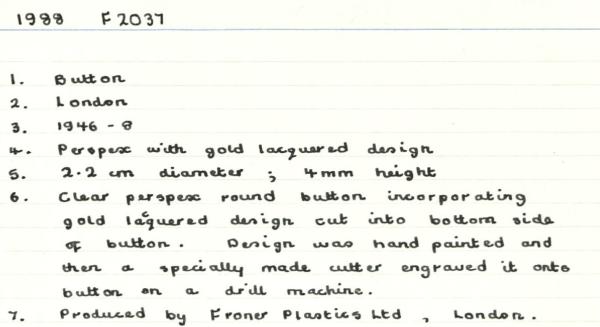 1988 F2037
1. Button
2. London
3. 1946 - 8
4. Perspex with gold lacquered design
5. 2.2 cm diameter ; 4mm height
6. Clear perspex round button incorporating
gold lacquered design cut into bottom side
of button. Design was hand painted and
then a specially made cutter engraved it onto
button on a drill machine.
7. Produced by Froner Plastics Ltd , London.